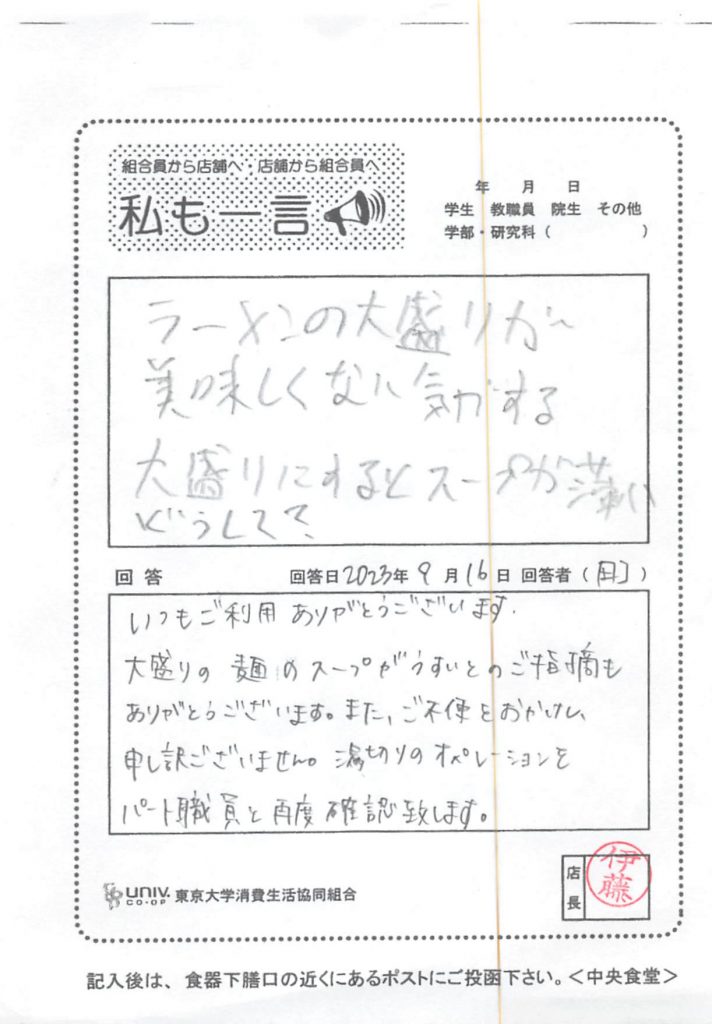 組合員から店舗へ・店舗から組合員へ
私も一言
年 月 日
学生 教職員 院生 その他
学部・研究科( )
ラーメンの大盛りが
美味しくない気がする
大盛りにするとスープが薄い
どうして?
回答 回答日2023年9月16日 回答者( )
いつもご利用ありがとうございます.
大盛りの麺のスープがうすいとのご指摘も
ありがとうございます。また、ご不便をおかけし、
申し訳ございません。湯切りのオペレーションを
パート職員と再度確認致します。
UNIV. CO-OP 東京大学消費生活協同組合
店長 伊藤
記入後は、食器下膳口の近くにあるポストにご投函下さい。<中央食堂>